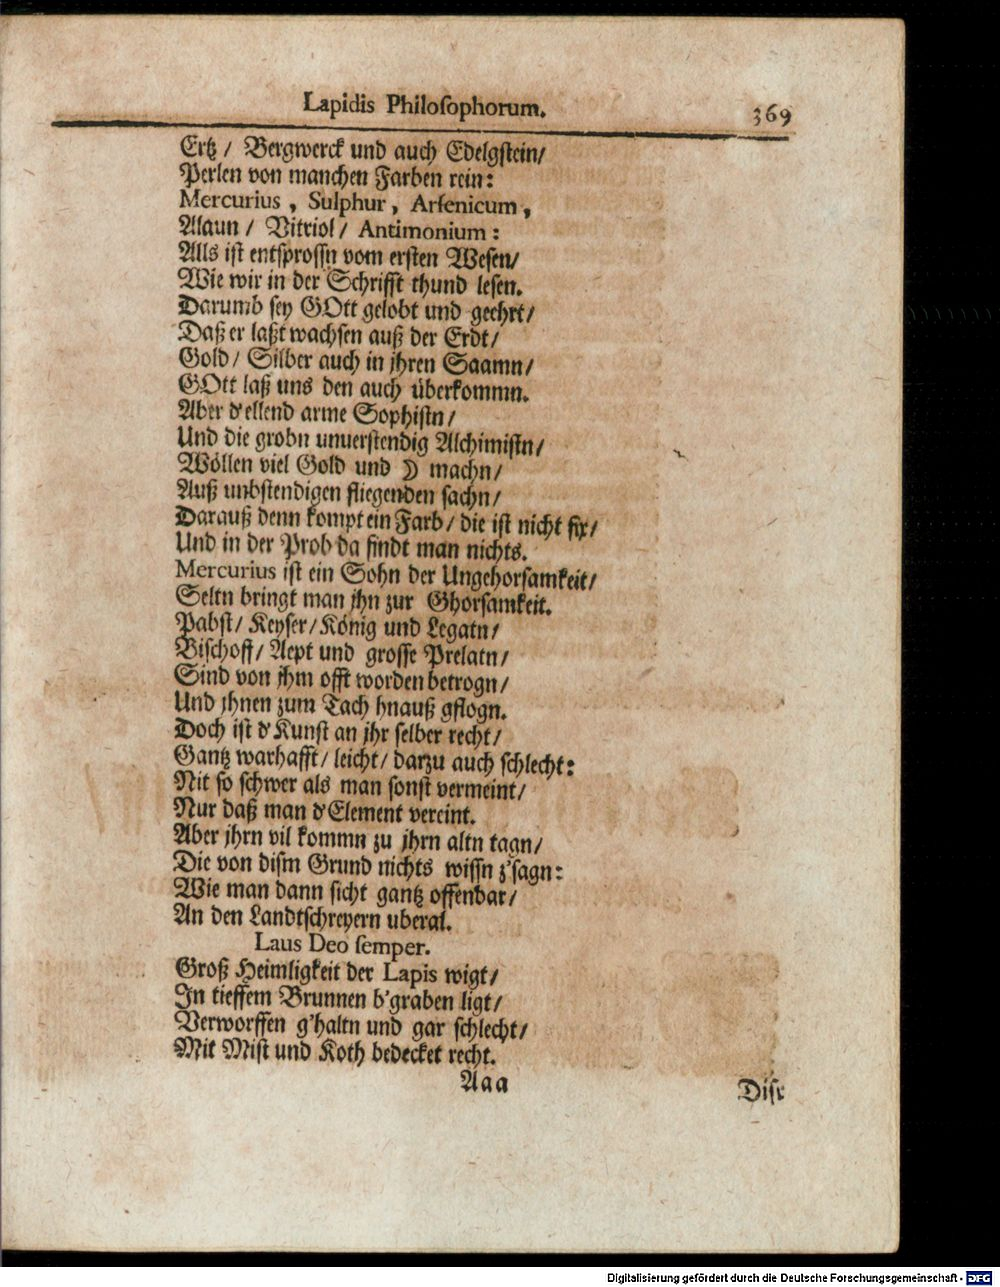 Lapidis Philosophorum. 369
Ertz / Bergwerck und auch Edelgstein /
Perlen von manchen Farben rein :
Mercurius , Sulphur , Arsenicum ,
Alaun / Vitriol / Antimonium :
Alls ist entsprossn vom ersten Wesen /
Wie wir in der Schrifft thund lesen.
Darumb sey GOtt gelobt und geehrt /
Daß er laßt wachsen auß der Erdt /
Gold / Silber auch in jhren Saamn /
GOtt laß uns den auch überkommn.
Aber d'ellend arme Sophistn /
Und die grobn unuerstendig Alchimistn /
Wöllen viel Gold und ☽ machn /
Auß unbstendigen fliegenden sachn /
Darauß denn kompt ein Farb / die ist nicht fix /
Und in der Prob da findt man nichts.
Mercurius ist ein Sohn der Ungehorsamkeit /
Seltn bringt man jhn zur Ghorsamkeit.
Pabst / Keyser / König und Legatn /
Bischoff / Aept und grosse Prelatn /
Sind von jhm offt worden betrogn /
Und jhnen zum Tach hnauß gflogn.
Doch ist d'Kunst an jhr selber recht /
Gantz warhafft / leicht / darzu auch schlecht :
Nit so schwer als man sonst vermeint /
Nur daß man d'Element vereint.
Aber jhrn vil kommn zu jhrn altn tagn /
Die von dism Grund nichts wissn z'sagn :
Wie man dann sicht gantz offenbar /
An den Landtschreyern uberal.
Laus Deo semper.
Groß Heimligkeit der Lapis wigt /
In tieffem Brunnen b'graben ligt /
Verworffen g'haltn und gar schlecht /
Mit Mist und Koth bedecket recht.
Aaa Disr
Digitalisierung gefördert durch die Deutsche Forschungsgemeinschaft - DFG